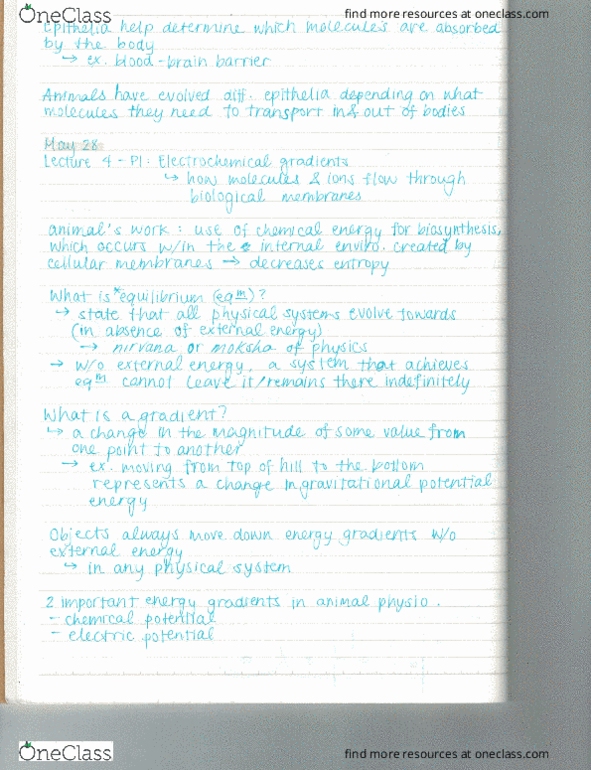 OneClass
find more resources at oneclass.com
Epithelia help determine which molecules are absorbed
by the body
↳ ex. blood-brain barrier
Animals have evolved diff. epithelia depending on what
molecules they need to transport in & out of bodies
May 28
Lecture 4 - P1: Electrochemical gradients
↳ how molecules & ions flow through
biological membranes
animal's work: use of chemical energy for biosynthesis,
which occurs w/in the internal enviro. created by
cellular membranes → decreases entropy
What is *equilibrium (eqm)?
↳ state that all physical systems evolve towards
(in absence of external energy)
→ nirvana or moksha of physics
→ w/o external energy, a system that achieves
eqm cannot leave it/remains there indefinitely
What is a gradient?
↳ a change in the magnitude of some value from
one point to another
→ ex. moving from top of hill to the bottom
represents a change in gravitational potential
energy
Objects always move down energy gradients w/o
external energy
↳ in any physical system
2 important energy gradients in animal physio.
- chemical potential
- electric potential
OneClass
find more resources at oneclass.com